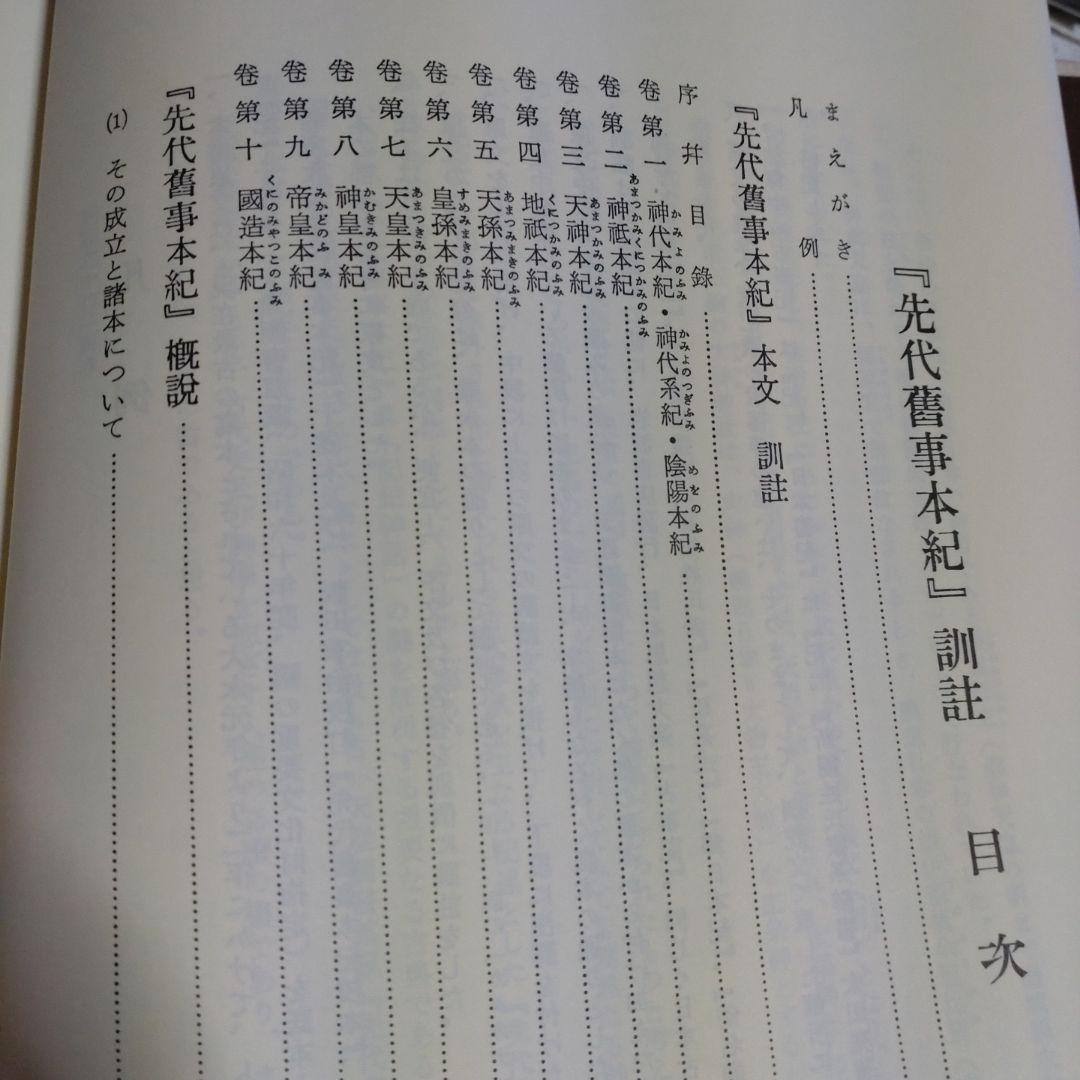 『先代舊事本紀』訓註　目次
まえがき
凡例
『先代舊事本紀』本文　訓註
序并目錄
卷第一　神代本紀・神代系紀・陰陽本紀
かみよのふみ　かみよのつぎふみ　めをのふみ
卷第二　神祇本紀
あまつかみくにつかみのふみ
卷第三　天神本紀
あまつかみのふみ
卷第四　地祇本紀
くにつかみのふみ
卷第五　天孫本紀
あまつみまきのふみ
卷第六　皇孫本紀
すめみまきのふみ
卷第七　天皇本紀
あまつきみのふみ
卷第八　神皇本紀
かむきみのふみ
卷第九　帝皇本紀
みかどのふみ
卷第十　國造本紀
くにのみやつこのふみ
『先代舊事本紀』概説
(1)　その成立と諸本について